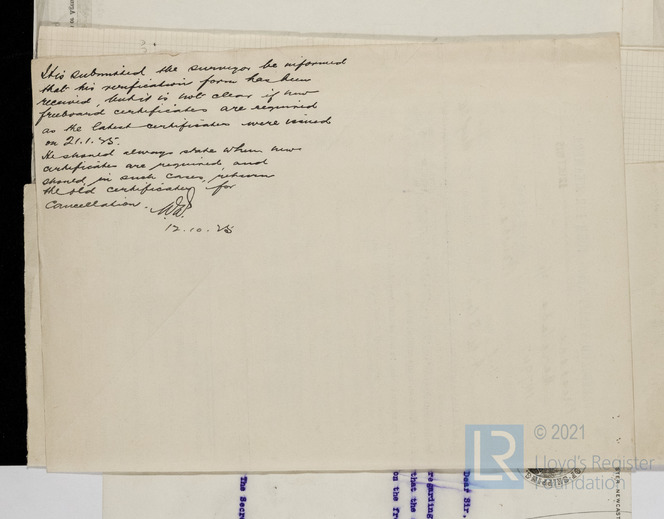 It is submitted the surveyor be informed
that his verification form has been
received, but it is not clear if new
freeboard certificates are required
as the latest certificates were issued
on 21.1.25.
He should always state when new
certificates are required, and
should, in such cases, return
the old certificates for
cancellation.
12.10.25
© 2021
Lloyd's Register
Foundation
LR
Dear Sir,
regarding
that the
on the fr
The Secr